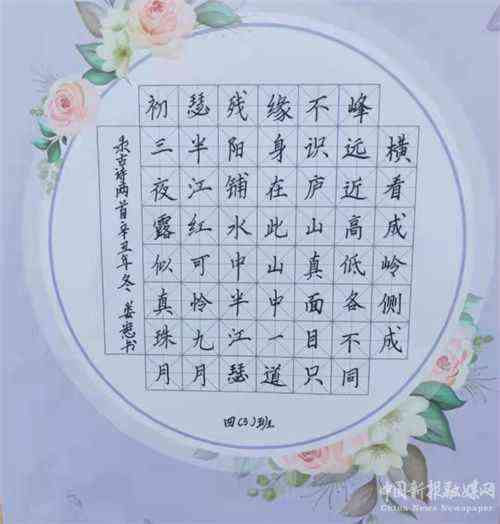 横看成岭侧成
峰远近高低各不同
不识庐山真面目只
缘身在此山中一道
残阳铺水中半江瑟
瑟半江红可怜九月
初三夜露似真珠月
录古诗两首辛丑年冬 娄书
四(3)班
中国新报融媒网
China News Newspaper